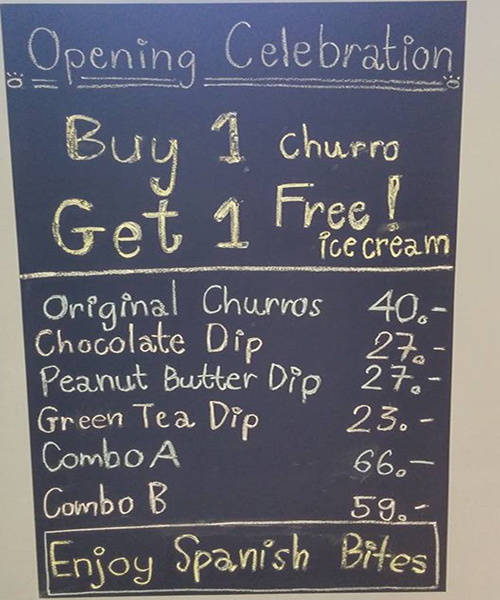 Opening Celebration
Buy 1 churro
Get 1 Free!
ice cream
Original Churros 40.-
Chocolate Dip 27.-
Peanut Butter Dip 27.-
Green Tea Dip 23.-
Combo A 66.-
Combo B 59.-
Enjoy Spanish Bites